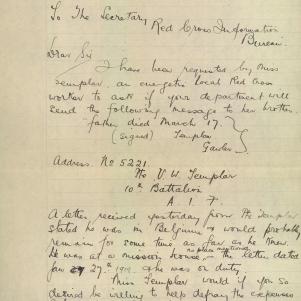 To The Secretary
Red Cross Information
Bureau.
Dear Sir
I have been requested by Miss
Templar, an energetic local Red Cross
worker to ask if your department will
send the following message to her brother
father died March 17.
(signed) Templar
Gawler
Address. No 5221.
Pte V. W. Templar
10th Battalion
A. I. F.
A letter received yesterday from Pte Templar
stated he was in Belgium & would probably
remain for some time as far as he knew.
He was at a mission house, no place mentioned, the letter dated
Jan 27th 1919. & he was on duty.
Miss Templar would if you so
desired be willing to help defray the expenses